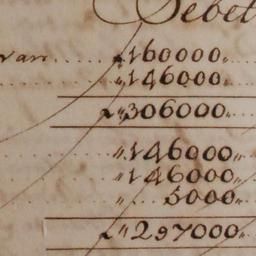 Debet
van ..... f 160000 „
..... „ 146000 „
f „ 306000 „
..... „ 146000 „
„ 146000 „
„ ... 5000 „
f „ 297000 „